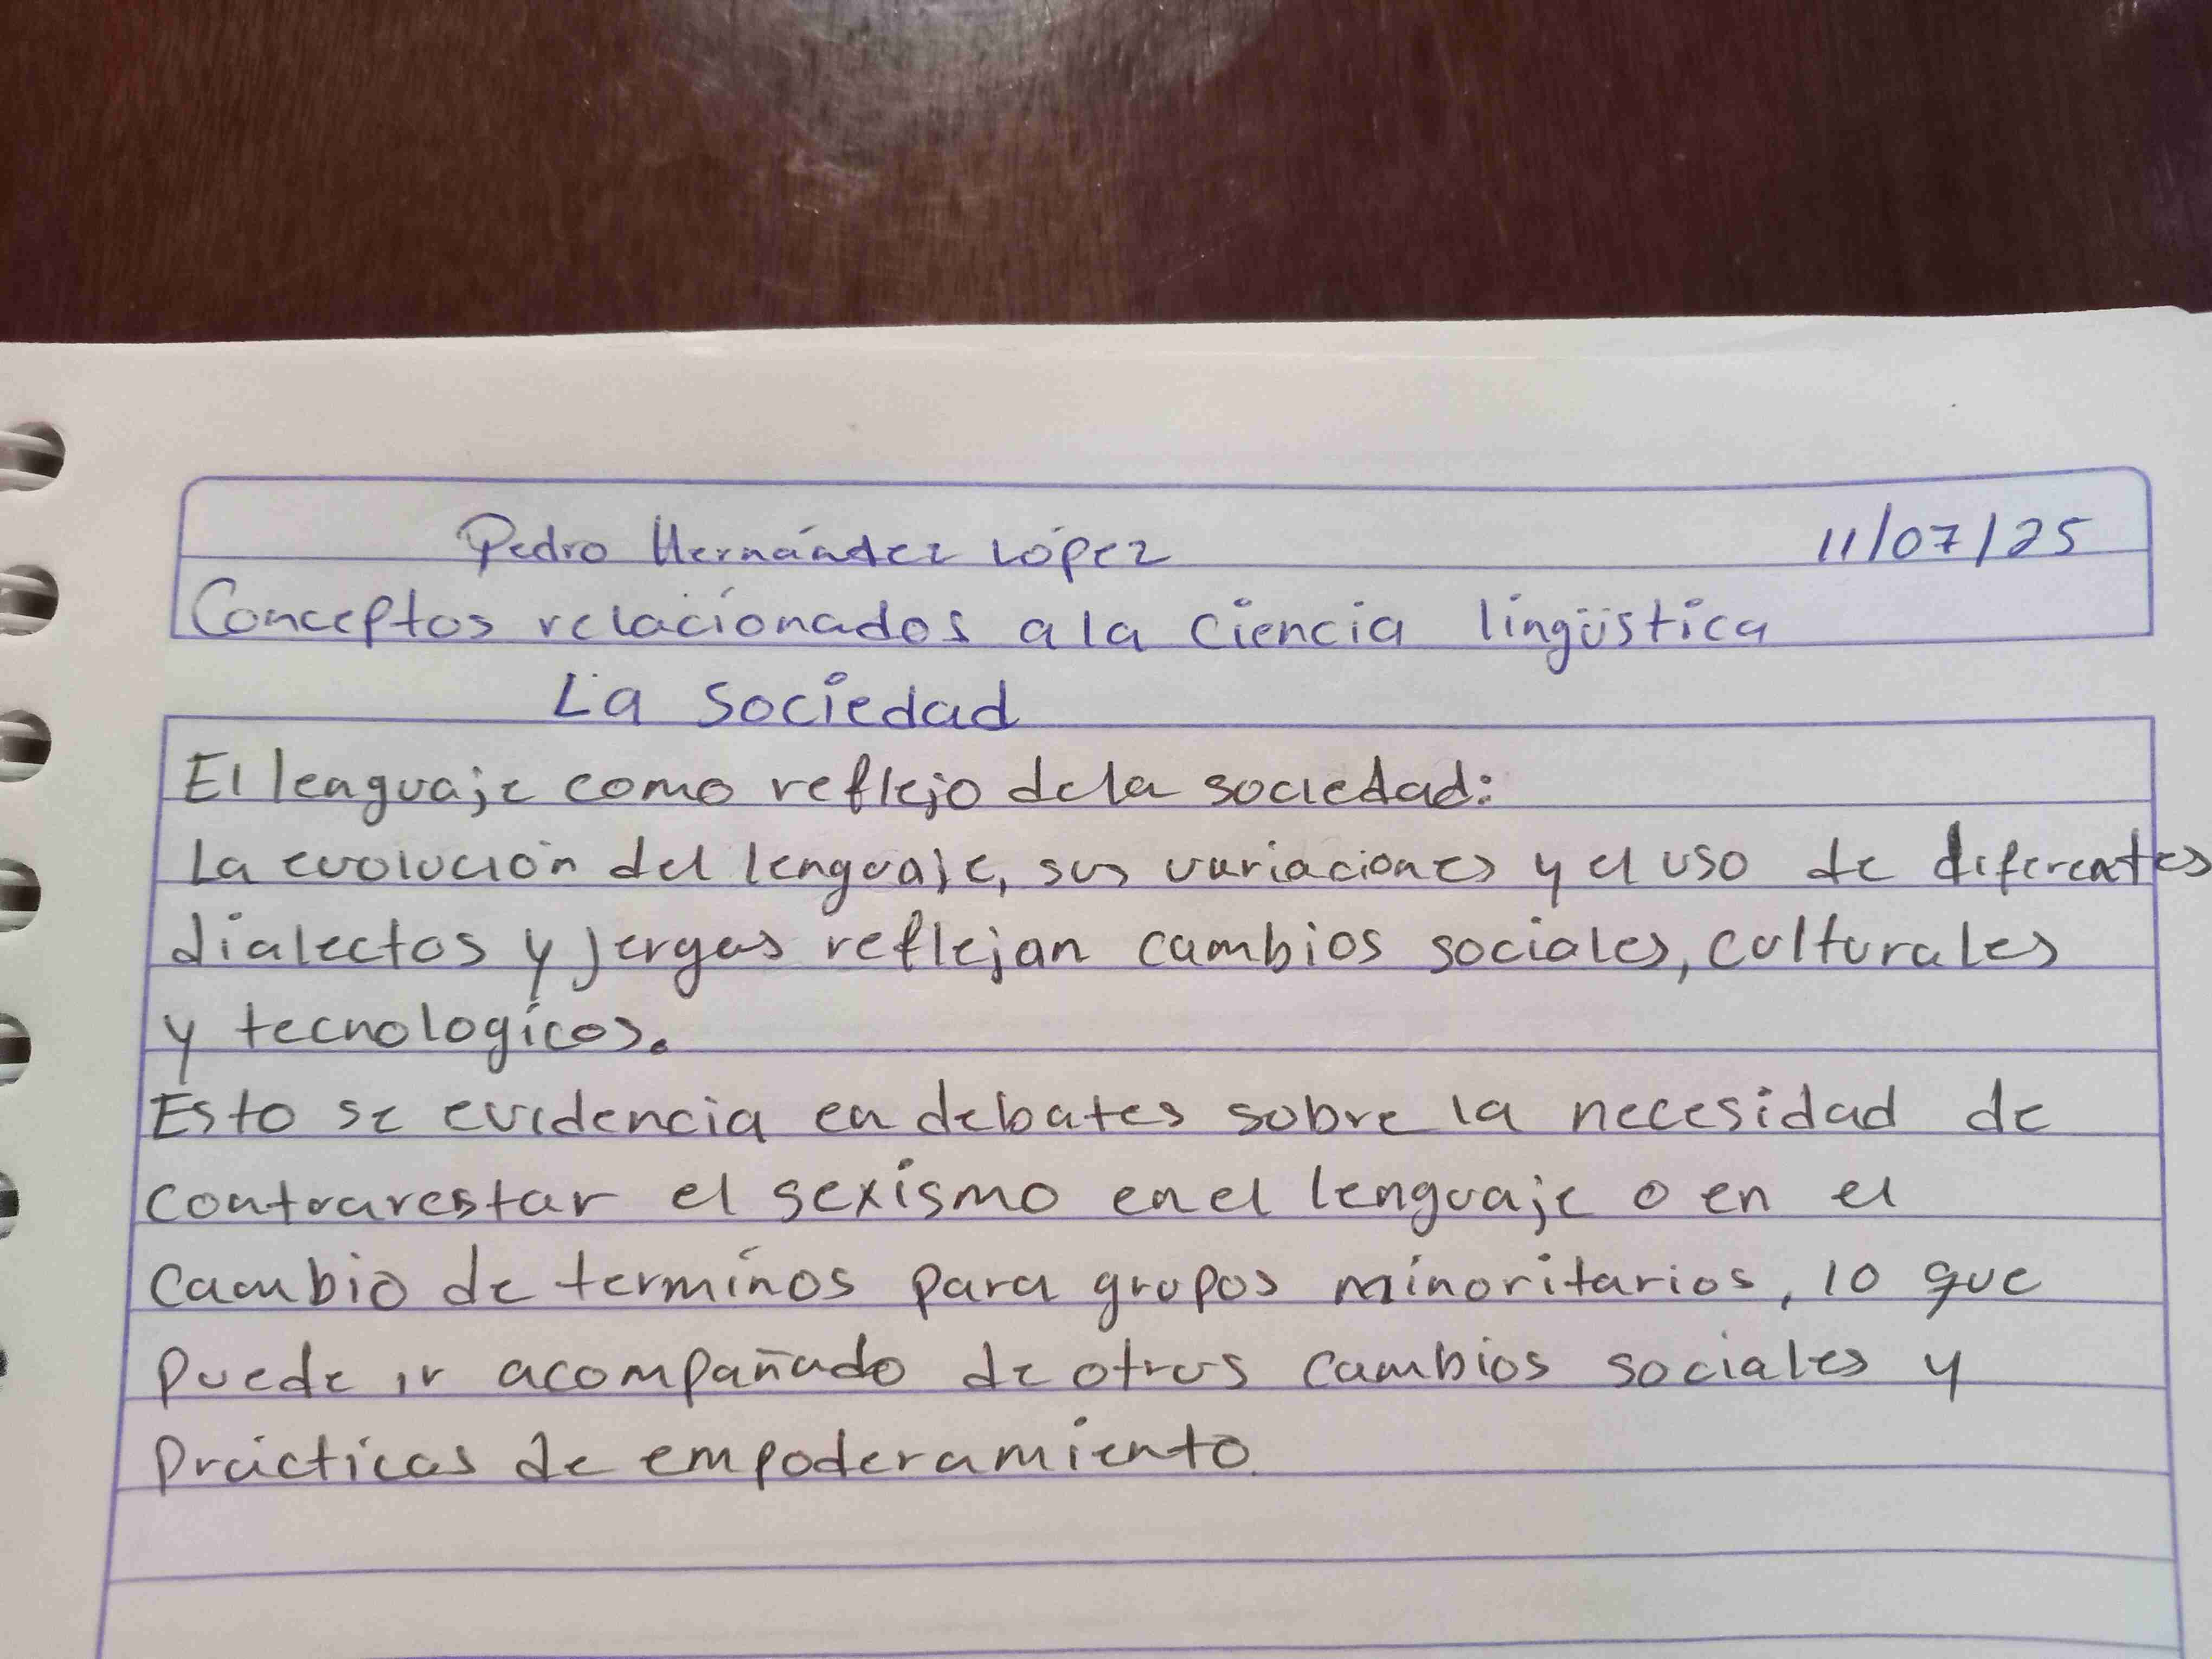 Pedro Hernández López 11/07/25
Conceptos relacionados a la Ciencia lingüística
La sociedad
El lenguaje como reflejo de la sociedad:
La evolución del lenguaje, sus variaciones y el uso de diferentes
dialectos y jergas reflejan cambios sociales, culturales
y tecnologicos.
Esto se evidencia en debates sobre la necesidad de
contrarestar el sexismo en el lenguaje o en el
cambio de terminos para grupos minoritarios, lo que
puede ir acompañado de otros cambios sociales y
prácticas de empoderamiento.